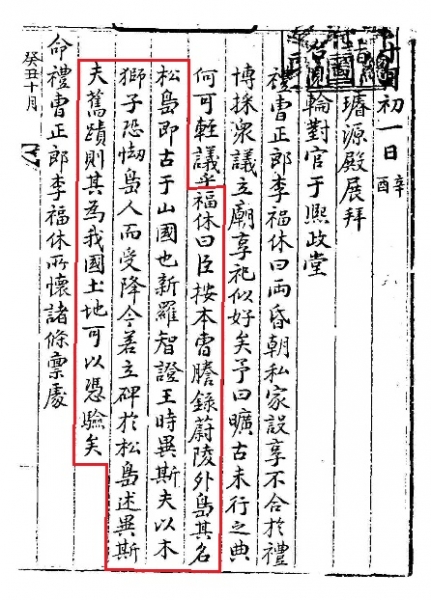 初一日辛酉
璿源殿展拜
召見輪對官于熙政堂
禮曹正郎李福休曰兩昏朝私家設享不合於禮
博採衆議立廟享祀似好矣予曰曠古未行之典
何可輕議乎福休曰臣按本曹謄錄蔚陵外島其名
松島即古于山國也新羅智證王時異斯夫以木
獅子恐㤼島人而受降今若立碑於松島述異斯
夫舊蹟則其為我國土地可以憑驗矣
命禮曹正郎李福休所懷諸條稟處
癸丑十月